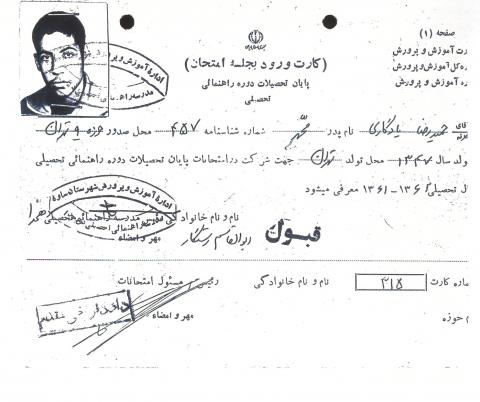 صفحه (۱)
رت آموزش و پرورش
ره کل آموزش و پرورش
ره آموزش و پرورش
(کارت ورود بجلسه امتحان)
پایان تحصیلات دوره راهنمائی
تحصیلی
اداره آموزش و پرورش
مدرسه راهنمائی
آقای حمیدرضا یادگاری نام پدر محمد شماره شناسنامه ۴۵۷ محل صدور حوزه ۹ تهران
ولد سال ۱۳۴۷ محل تولد تهران جهت شرکت در امتحانات پایان تحصیلات دوره راهنمائی تحصیلی
ل تحصیلی ۱۳۶۱-۱۳۶۱ معرفی میشود
اداره آموزش و پرورش شهرستان ساوه
نام و نام خانوادگی مدرسه راهنمائی تحصیلی
مهر و امضاء
ابوالقاسم رستگار
قبول
ماره کارت ۴۱۵ نام و نام خانوادگی رئیس مسئول امتحانات
م حوزه مهر و امضاء